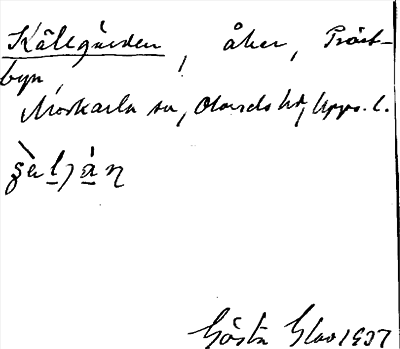 Källgården, åker, Präst-
byn,
Morkarla sn, Olands hd, Upps. l.
Gösta Glav 1937